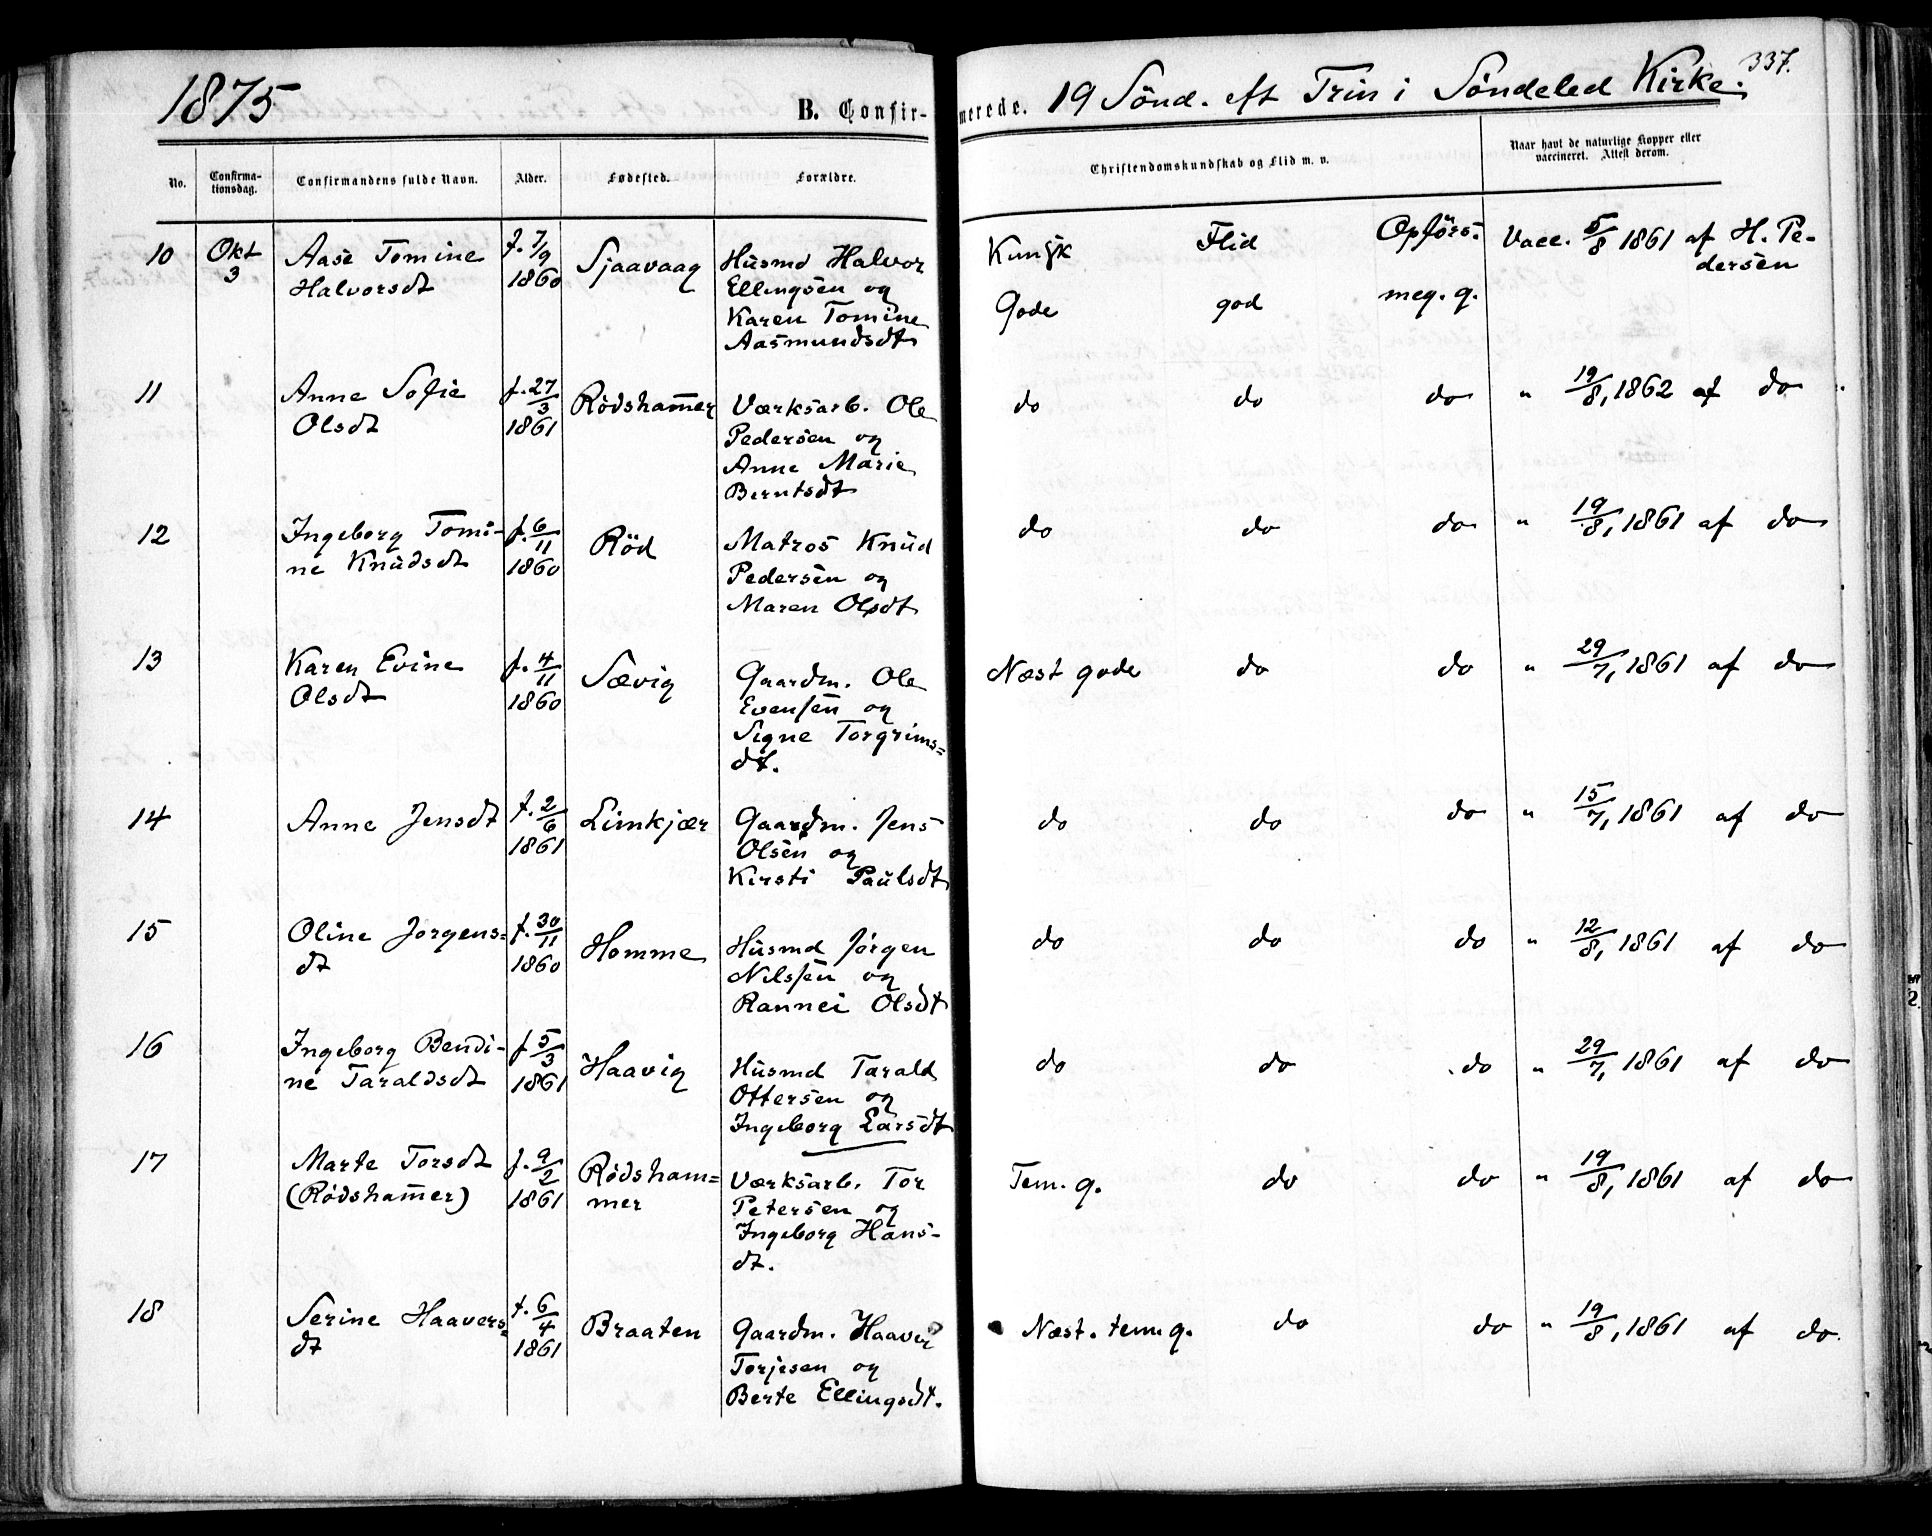 1875 B. Confir-merede. 19 Sönd. eft Trin i Söndeled Kirke. 337.
No. Confirma-tionsdag. Confirmandens fulde Navn. Alder. Fødested. Forældre. Christendomskundskab og Flid m. v. Naar havt de naturlige Kopper eller
vaccineret. Attest derom.
10 Okt Aase Tomine f. 7/9 Sjaavaag Husmd Halvor Kunsk Flid Opförs. Vacc. 5/8 1861 af H. Pe-
3 Halvorsdt 1860 Ellingsen og dersen
Karen Tomine Gode god meg. g.
Aasmundsdt
11 Anne Sofie f. 27/3 Rödsham̄er Værksarb. Ole do do do " 19/8, 1862 af do
Olsdt 1861 Pedersen og
Anne Marie
Berntsdt
12 Ingeborg Tomi- f. 6/11 Röd Matros Knud do do do " 19/8, 1861 af do
ne Knudsdt 1860 Pedersen og
Maren Olsdt
13 Karen Evine f. 4/11 Sævig Gaardm. Ole Næst gode do do " 29/7, 1861 af do
Olsdt 1860 Evensen og
Signe Torgrims=
dt.
14 Anne Jensdt f. 2/6 Limkjær Gaardm. Jens do do do " 15/7, 1861 af do
1861 Olsen og
Kirsti Paulsdt
15 Oline Jorgens= f. 30/11 Homme Husmd Jörgen do do do " 12/8, 1861 af do
dt 1860 Nilssen og
Rannei Olsdt
16 Ingeborg Bendi- f 5/3 Haavig Husmd Tarald do do do " 29/7, 1861 af do
ne Taraldsdt 1861 Ottersen og
Ingeborg Larsdt
17 Marte Torsdt f. 9/2 Rödsham= Værksarb. Tor Tem. g. do do " 19/8, 1861 af do
(Rödsham̄er) 1861 mer Petersen og
Ingeborg Hans-
dt.
18 Serine Haavers= f. 6/4 Braaten Gaardm. Haaver Næst. tem g. do do " 19/8, 1861 af do.
dt 1861 Torjesen og
Berte Ellingsdt.